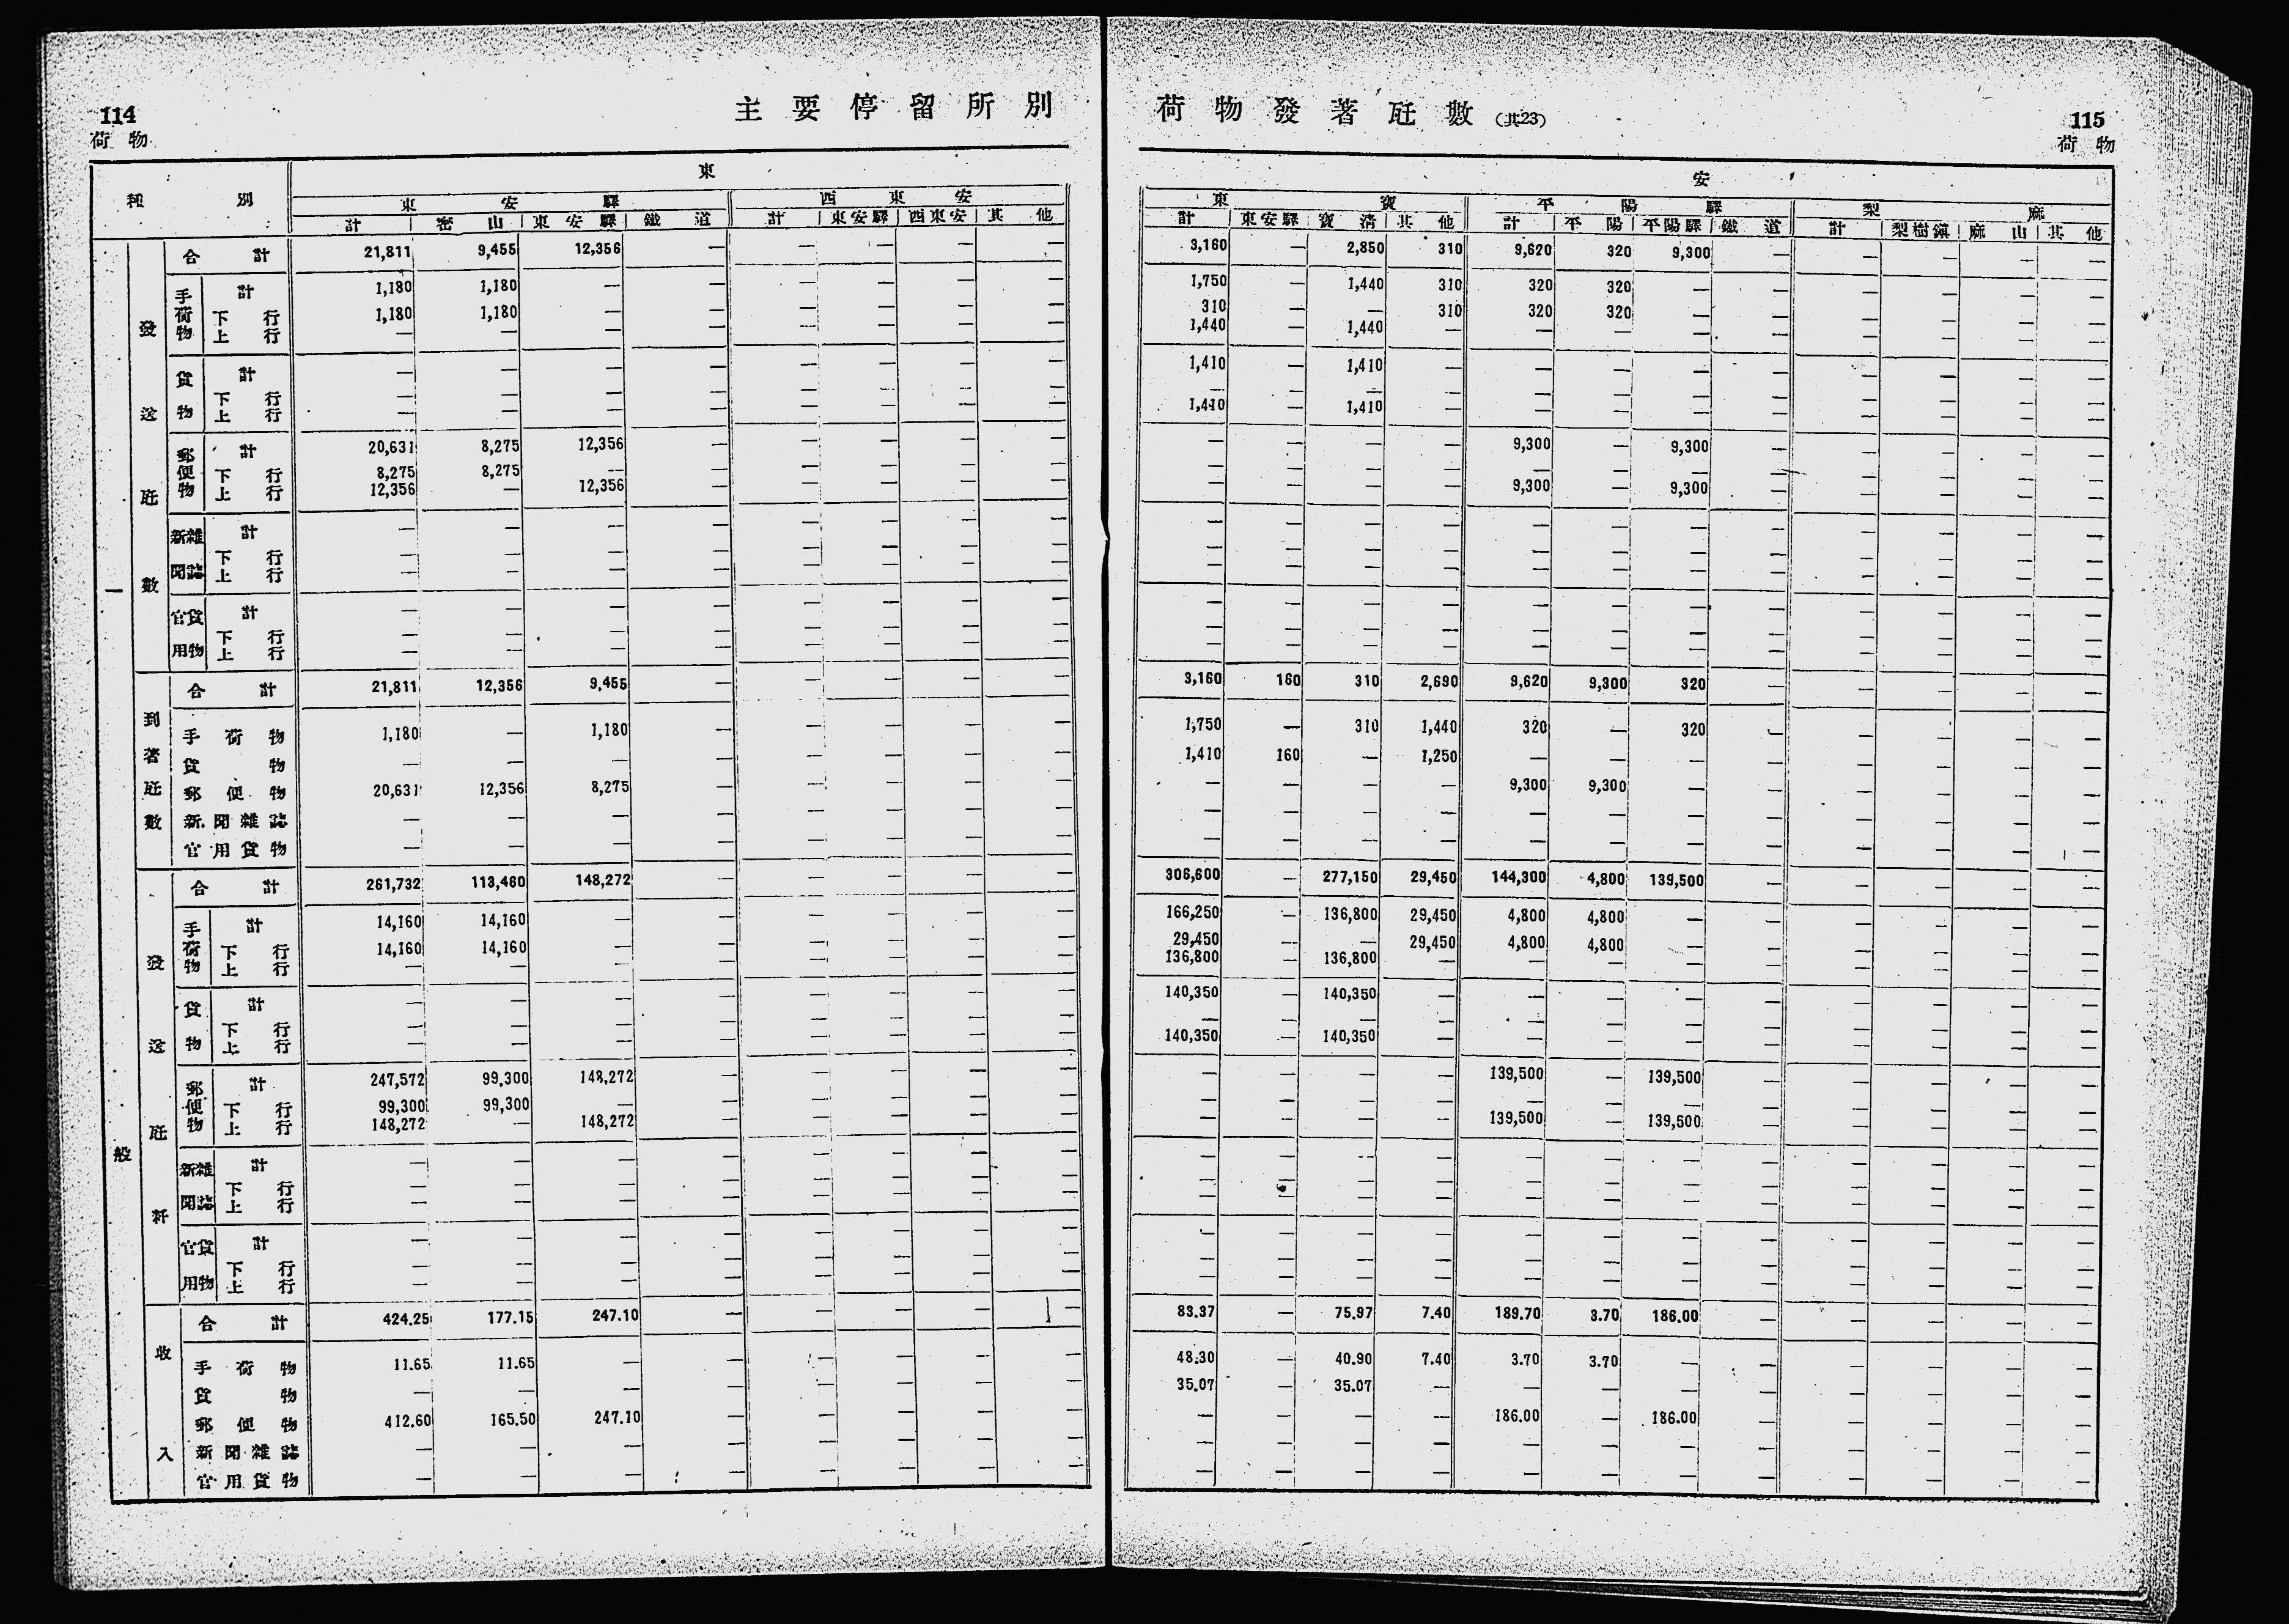 114
荷物
主要停留所別
種別 東
東安驛 西東安
計 密山 東安驛 鐵道 計 東安驛 西東安 其他
一般
發送瓩數
合計 21,811 9,455 12,356 — — — — —
手荷物 計 1,180 1,180 — — — — — —
下行 1,180 1,180 — — — — — —
上行 — — — — — — — —
貨物 計 — — — — — — — —
下行 — — — — — — — —
上行 — — — — — — — —
郵便物 計 20,631 8,275 12,356 — — — — —
下行 8,275 8,275 — — — — — —
上行 12,356 — 12,356 — — — — —
新聞雜誌 計 — — — — — — — —
下行 — — — — — — — —
上行 — — — — — — — —
官用貨物 計 — — — — — — — —
下行 — — — — — — — —
上行 — — — — — — — —
到著瓩數
合計 21,811 12,356 9,455 — — — — —
手荷物 1,180 — 1,180 — — — — —
貨物 — — — — — — — —
郵便物 20,631 12,356 8,275 — — — — —
新聞雜誌 — — — — — — — —
官用貨物 — — — — — — — —
發送瓩粁
合計 261,732 113,460 148,272 — — — — —
手荷物 計 14,160 14,160 — — — — — —
下行 14,160 14,160 — — — — — —
上行 — — — — — — — —
貨物 計 — — — — — — — —
下行 — — — — — — — —
上行 — — — — — — — —
郵便物 計 247,572 99,300 148,272 — — — — —
下行 99,300 99,300 — — — — — —
上行 148,272 — 148,272 — — — — —
新聞雜誌 計 — — — — — — — —
下行 — — — — — — — —
上行 — — — — — — — —
官用貨物 計 — — — — — — — —
下行 — — — — — — — —
上行 — — — — — — — —
收入
合計 424.25 177.15 247.10 — — — — —
手荷物 11.65 11.65 — — — — — —
貨物 — — — — — — — —
郵便物 412.60 165.50 247.10 — — — — —
新聞雜誌 — — — — — — — —
官用貨物 — — — — — — — —
荷物發著瓩數(其23)
115
荷物
安
東寶 平陽驛 梨麻
計 東安驛 寶清 其他 計 平陽 平陽驛 鐵道 計 梨樹鎭 麻山 其他
3,160 — 2,850 310 9,620 320 9,300 — — — — —
1,750 — 1,440 310 320 320 — — — — — —
310 — — 310 320 320 — — — — — —
1,440 — 1,440 — — — — — — — — —
1,410 — 1,410 — — — — — — — — —
— — — — — — — — — — — —
1,410 — 1,410 — — — — — — — — —
— — — — 9,300 — 9,300 — — — — —
— — — — — — — — — — — —
— — — — 9,300 — 9,300 — — — — —
— — — — — — — — — — — —
— — — — — — — — — — — —
— — — — — — — — — — — —
— — — — — — — — — — — —
— — — — — — — — — — — —
— — — — — — — — — — — —
3,160 160 310 2,690 9,620 9,300 320 — — — — —
1,750 — 310 1,440 320 — 320 — — — — —
1,410 160 — 1,250 — — — — — — — —
— — — — 9,300 9,300 — — — — — —
— — — — — — — — — — — —
— — — — — — — — — — — —
306,600 — 277,150 29,450 144,300 4,800 139,500 — — — — —
166,250 — 136,800 29,450 4,800 4,800 — — — — — —
29,450 — — 29,450 4,800 4,800 — — — — — —
136,800 — 136,800 — — — — — — — — —
140,350 — 140,350 — — — — — — — — —
— — — — — — — — — — — —
140,350 — 140,350 — — — — — — — — —
— — — — 139,500 — 139,500 — — — — —
— — — — — — — — — — — —
— — — — 139,500 — 139,500 — — — — —
— — — — — — — — — — — —
— — — — — — — — — — — —
— — — — — — — — — — — —
— — — — — — — — — — — —
— — — — — — — — — — — —
— — — — — — — — — — — —
83.37 — 75.97 7.40 189.70 3.70 186.00 — — — — —
48.30 — 40.90 7.40 3.70 3.70 — — — — — —
35.07 — 35.07 — — — — — — — — —
— — — — 186.00 — 186.00 — — — — —
— — — — — — — — — — — —
— — — — — — — — — — — —